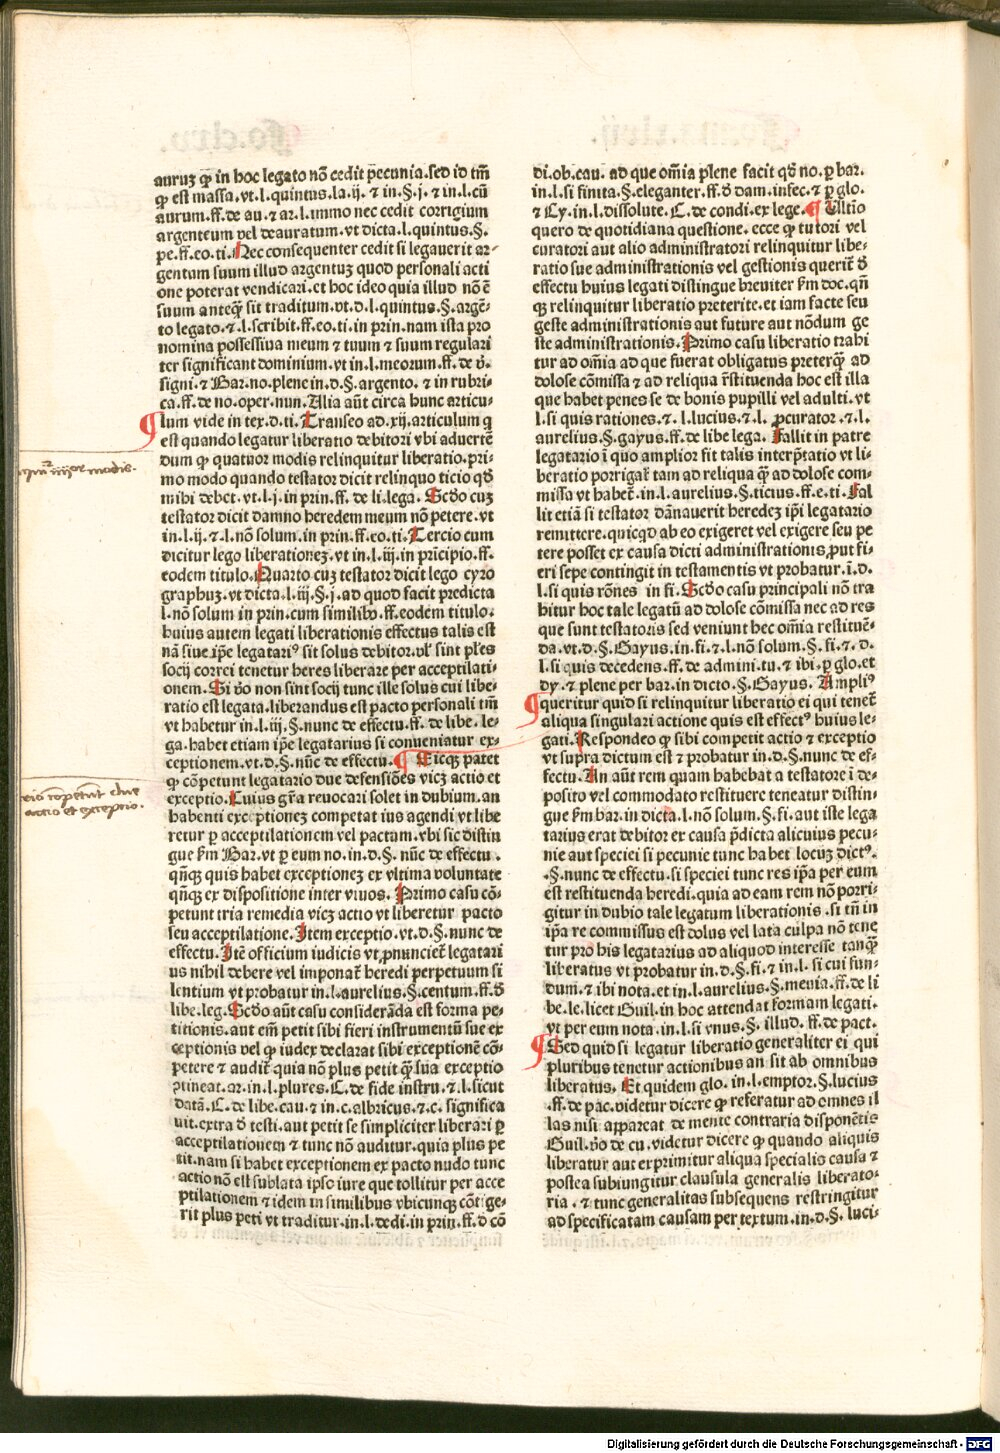 auruꝫ ꝙ in hoc legato nõ cedit pecunia.sed id tm̃
ꝙ est massa.vt.l.quintus.la.ij.⁊ in.§.j.⁊ in.l.cũ
aurum.ff.de au.⁊ ar.l.immo nec cedit corrigium
argenteum vel deauratum.vt dicta.l.quintus.§.
pe.ff.eo.ti.Nec consequenter cedit si legauerit ar⸗
gentum suum illud argentuꝫ quod personali acti
one poterat vendicari.et hoc ideo quia illud nõ ẽ
suum anteq̃ sit traditum.vt.d.l.quintus.§.argẽ⸗
to legato.⁊.l.scribit.ff.eo.ti.in prin.nam ista pro
nomina possessiua meum ⁊ tuum ⁊ suum regulari
ter significant dominium.vt in.l.meorum.ff.de v̉.
signi.⁊ Bar.no.plene in.d.§.argento.⁊ in rubri⸗
ca.ff.de no.oper.nun.Alia aũt circa hunc articu⸗
lum vide in tex.d.ti.Transeo ad.xij.articulum q
est quando legatur liberatio debitori vbi aduertẽ
dum ꝙ quatuor modis relinquitur liberatio.pri⸗
mo modo quando testator dicit relinquo ticio qḋ
mihi debet.vt.l.j.in prin.ff.de li.lega.Scḋo cuꝫ
testator dicit damno heredem meum nõ petere.vt
in.l.ij.⁊.l.nõ solum.in prin.ff.eo.ti.Tercio cum
dicitur lego liberationeꝫ.vt in.l.iij.in prĩcipio.ff.
eodem titulo.Quarto cuꝫ testator dicit lego cyro
graphuꝫ.vt dicta.l.iij.§.j.ad quod facit predicta
l.nõ solum in prin.cum similibꝰ.ff.eodem titulo.
huius autem legati liberationis effectus talis est
nã siue ip̃e legatariꝰ sit solus debitor.vl̉ sint pl̃es
socij correi tenetur heres liberare per acceptilati⸗
onem.Si ṽo non sint socij tunc ille solus cui libe⸗
ratio est legata.liberandus est pacto personali tm̃
vt habetur in.l.iij.§.nunc de effectu.ff.de libe.le⸗
ga.habet etiam ip̃e legatarius si conueniatur ex⸗
ceptionem.vt.d.§.nũc de effectu. Eicqꝫ patet
ꝙ cõpetunt legatario due defensiões vicꝫ actio et
exceptio.Cuius gr̃a reuocari solet in dubium.an
habenti exceptioneꝫ competat ius agendi vt libe
retur ꝑ acceptilationem vel pactam.vbi sic distin
gue ẜm Bar.vt ꝑ eum no.in.d.§.nũc de effectu.
qñqꝫ quis habet exceptioneꝫ ex vltima voluntate
qñqꝫ ex dispositione inter viuos.Primo casu cõ⸗
petunt tria remedia vicꝫ actio vt liberetur pacto
seu acceptilatione.Item exceptio.vt.d.§.nunc de
effectu.Itẽ officium iudicis vt ꝓnunciet̃ legatari
us nihil debere vel imponat̃ heredi perpetuum si
lentium vt probatur in.l.aurelius.§.centum.ff.ḋ
libe.leg.Scḋo aũt casu considerãda est forma pe⸗
titionis.aut em̃ petit sibi fieri instrumentũ sue ex
ceptionis vel ꝙ iudex declarat sibi exceptionẽ cõ⸗
petere ⁊ audit̃ quia nõ plus petit q̃ sua exceptio
ꝯtineat.ar.in.l.plures.C.de fide instru.⁊.l.sicut
datã.C.de libe.cau.⁊ in.c.albricus.⁊.c.significa
uit.extra ḋ testi.aut petit se simpliciter liberari ꝑ
acceptilationem ⁊ tunc nõ auditur.quia plus pe
tit.nam si habet exceptionem ex pacto nudo tunc
actio nõ est sublata ipso iure que tollitur per acce
ptilationem ⁊ idem in similibus vbicunqꝫ cõti ge⸗
rit plus peti vt traditur.in.l.dedi.in prin.ff.ḋ cõ
di.ob.cau. ad que om̃ia plene facit qḋ no.ꝑ bar.
in.l.si finita.§.eleganter.ff.ḋ dam.infec.⁊ ꝑ glo.
⁊ Cy.in.l.dissolute.C.de condi.ex lege. Ultio
quero de quotidiana questione.ecce ꝙ tutori vel
curatori aut alio administratori relinquitur libe⸗
ratio sue administrationis vel gestionis querit̃ ḋ
effectu huius legati distingue breuiter ẜm doc.qñ
qꝫ relinquitur liberatio preterite.et iam facte seu
geste administrationis aut future aut nõdum ge
ste administrationis.Primo casu liberatio trahi
tur ad om̃ia ad que fuerat obligatus preterq̃ ad
dolose cõmissa ⁊ ad reliqua r̃stituenda hoc est illa
que habet penes se de bonis pupilli vel adulti.vt
l.si quis rationes.⁊.l.lucius.⁊.l. ꝓcurator.⁊.l.
aurelius.§.gayus.ff.de libe lega. Fallit in patre
legatario ĩ quo amplior fit talis interp̃tatio vt li⸗
beratio porrigat̃ tam ad reliqua q̃ ad dolose com⸗
missa vt habet̃.in.l.aurelius.§.ticius.ff.e.ti.Fal
lit etiã si testator dãnauerit heredeꝫ ip̃i legatario
remittere.quicqd ab eo exigeret vel exigere seu pe
tere posset ex causa dicti administrationis ꝓut fi⸗
eri sepe contingit in testamentis vt probatur.ĩ.d.
l.si quis rões in fi.Scḋo casu principali nõ tra
hitur hoc tale legatũ ad dolose cõmissa nec ad res
que sunt testatoris sed veniunt hec om̃ia restituẽ⸗
da.vt.d.§.Gayus.in.fi.⁊.l.nõ solum.§.fi.⁊.d.
l.si quis decedens.ff.de admini.tu.⁊ ibi.ꝑ glo.et
dy.⁊ plene per bar.in dicto.§.Gayus. Ampliꝰ
queritur quid si relinquitur liberatio ei qui tenet̃
aliqua singulari actione quis est effectꝰ huius le⸗
gati.Respondeo ꝙ sibi competit actio ⁊ exceptio
vt supra dictum est ⁊ probatur in.d.§.nunc de ef⸗
fectu.An aũt rem quam habebat a testatore ĩ de⸗
posito vel commodato restituere teneatur distin⸗
gue ẜm bar.in dicta.l.nõ solum.§.fi.aut iste lega
tarius erat debitor ex causa p̃dicta alicuius pecu⸗
nie aut speciei si pecunie tunc habet locuꝫ dictꝰ.
.§.nunc de effectu.si speciei tunc res ip̃a per eum
est restituenda heredi.quia ad eam rem nõ porri⸗
gitur in dubio tale legatum liberationis.si tñ in
ip̃a re commissus est dolus vel lata culpa nõ tene
tur pro his legatarius ad aliquod interesse tanq̃
liberatus vt probatur in.d.§.fi.⁊ in.l.si cui fun⸗
dum.⁊ ibi nota.et in.l.aurelius.§.meuia.ff.de li
be.le.licet Guil.in hoc attendat formam legati.
vt per eum nota.in.l.si vnus.§.illud.ff.de pact.
Sed quid si legatur liberatio generaliter ei qui
pluribus tenetur actionibus an sit ab omnibus
liberatus. Et quidem glo.in.l.emptor.§.lucius
.ff.de pac.videtur dicere ꝙ referatur ad omnes il
las nisi appareat de mente contraria disponẽtis
Guil.ṽo de cu.videtur dicere ꝙ quando aliquis
liberatur aut exprimitur aliqua specialis causa ⁊
postea subiungitur clausula generalis liberato⸗
ria.⁊ tunc generalitas subsequens restringitur
ad specificatam causam per textum.in.d.§.luci⸗
modis.
actio et exceptio.
Digitalisierung gefördert durch die Deutsche Forschungsgemeinschaft - DFG